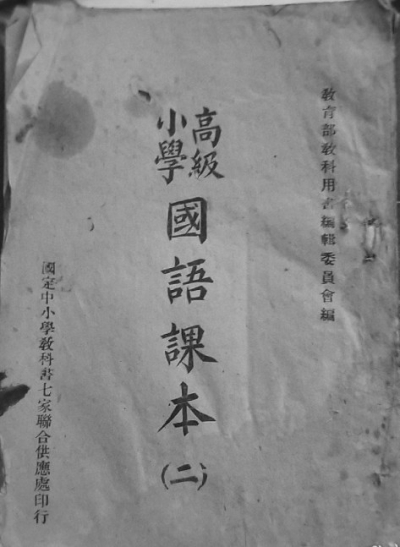 教育部教科用書編輯委員會編
高級
小學
國語課本
(二)
國定中小學教科書七家聯合供應處印行